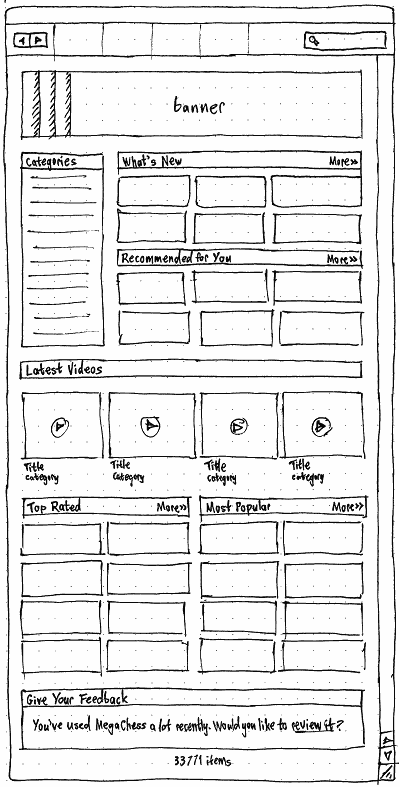 banner
Categories
What's New More»
Recommended for You More»
Latest Videos
Title Title Title Title
category category category category
Top Rated More» Most Popular More»
Give Your Feedback
You've used MegaChess a lot recently. Would you like to review it?
33771 items